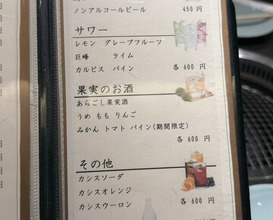 ノンアルコールビール 450 円
サワー
レモン グレープフルーツ
巨峰 ライム
カルピス パイン 各 600 円
果実のお酒
あらごし果実酒
うめ もも りんご
みかん トマト パイン(期間限定)
各 600 円
その他
カシスソーダ
カシスオレンジ
カシスウーロン 各 600 円